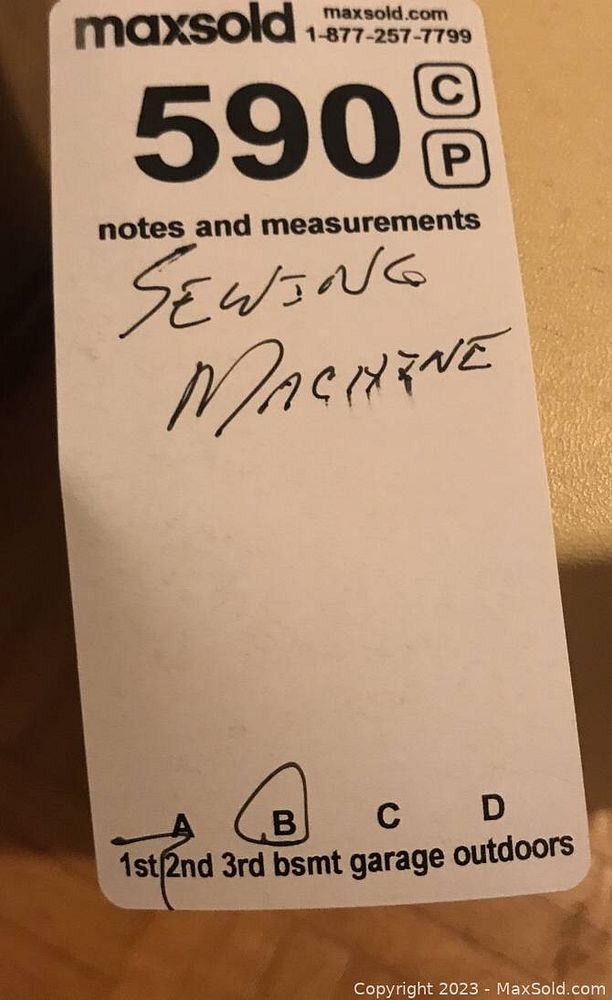 maxsold maxsold.com
1-877-257-7799
590 C
P
notes and measurements
SEWING
MACHINE
A B C D
1st 2nd 3rd bsmt garage outdoors
Copyright 2023 - MaxSold.com